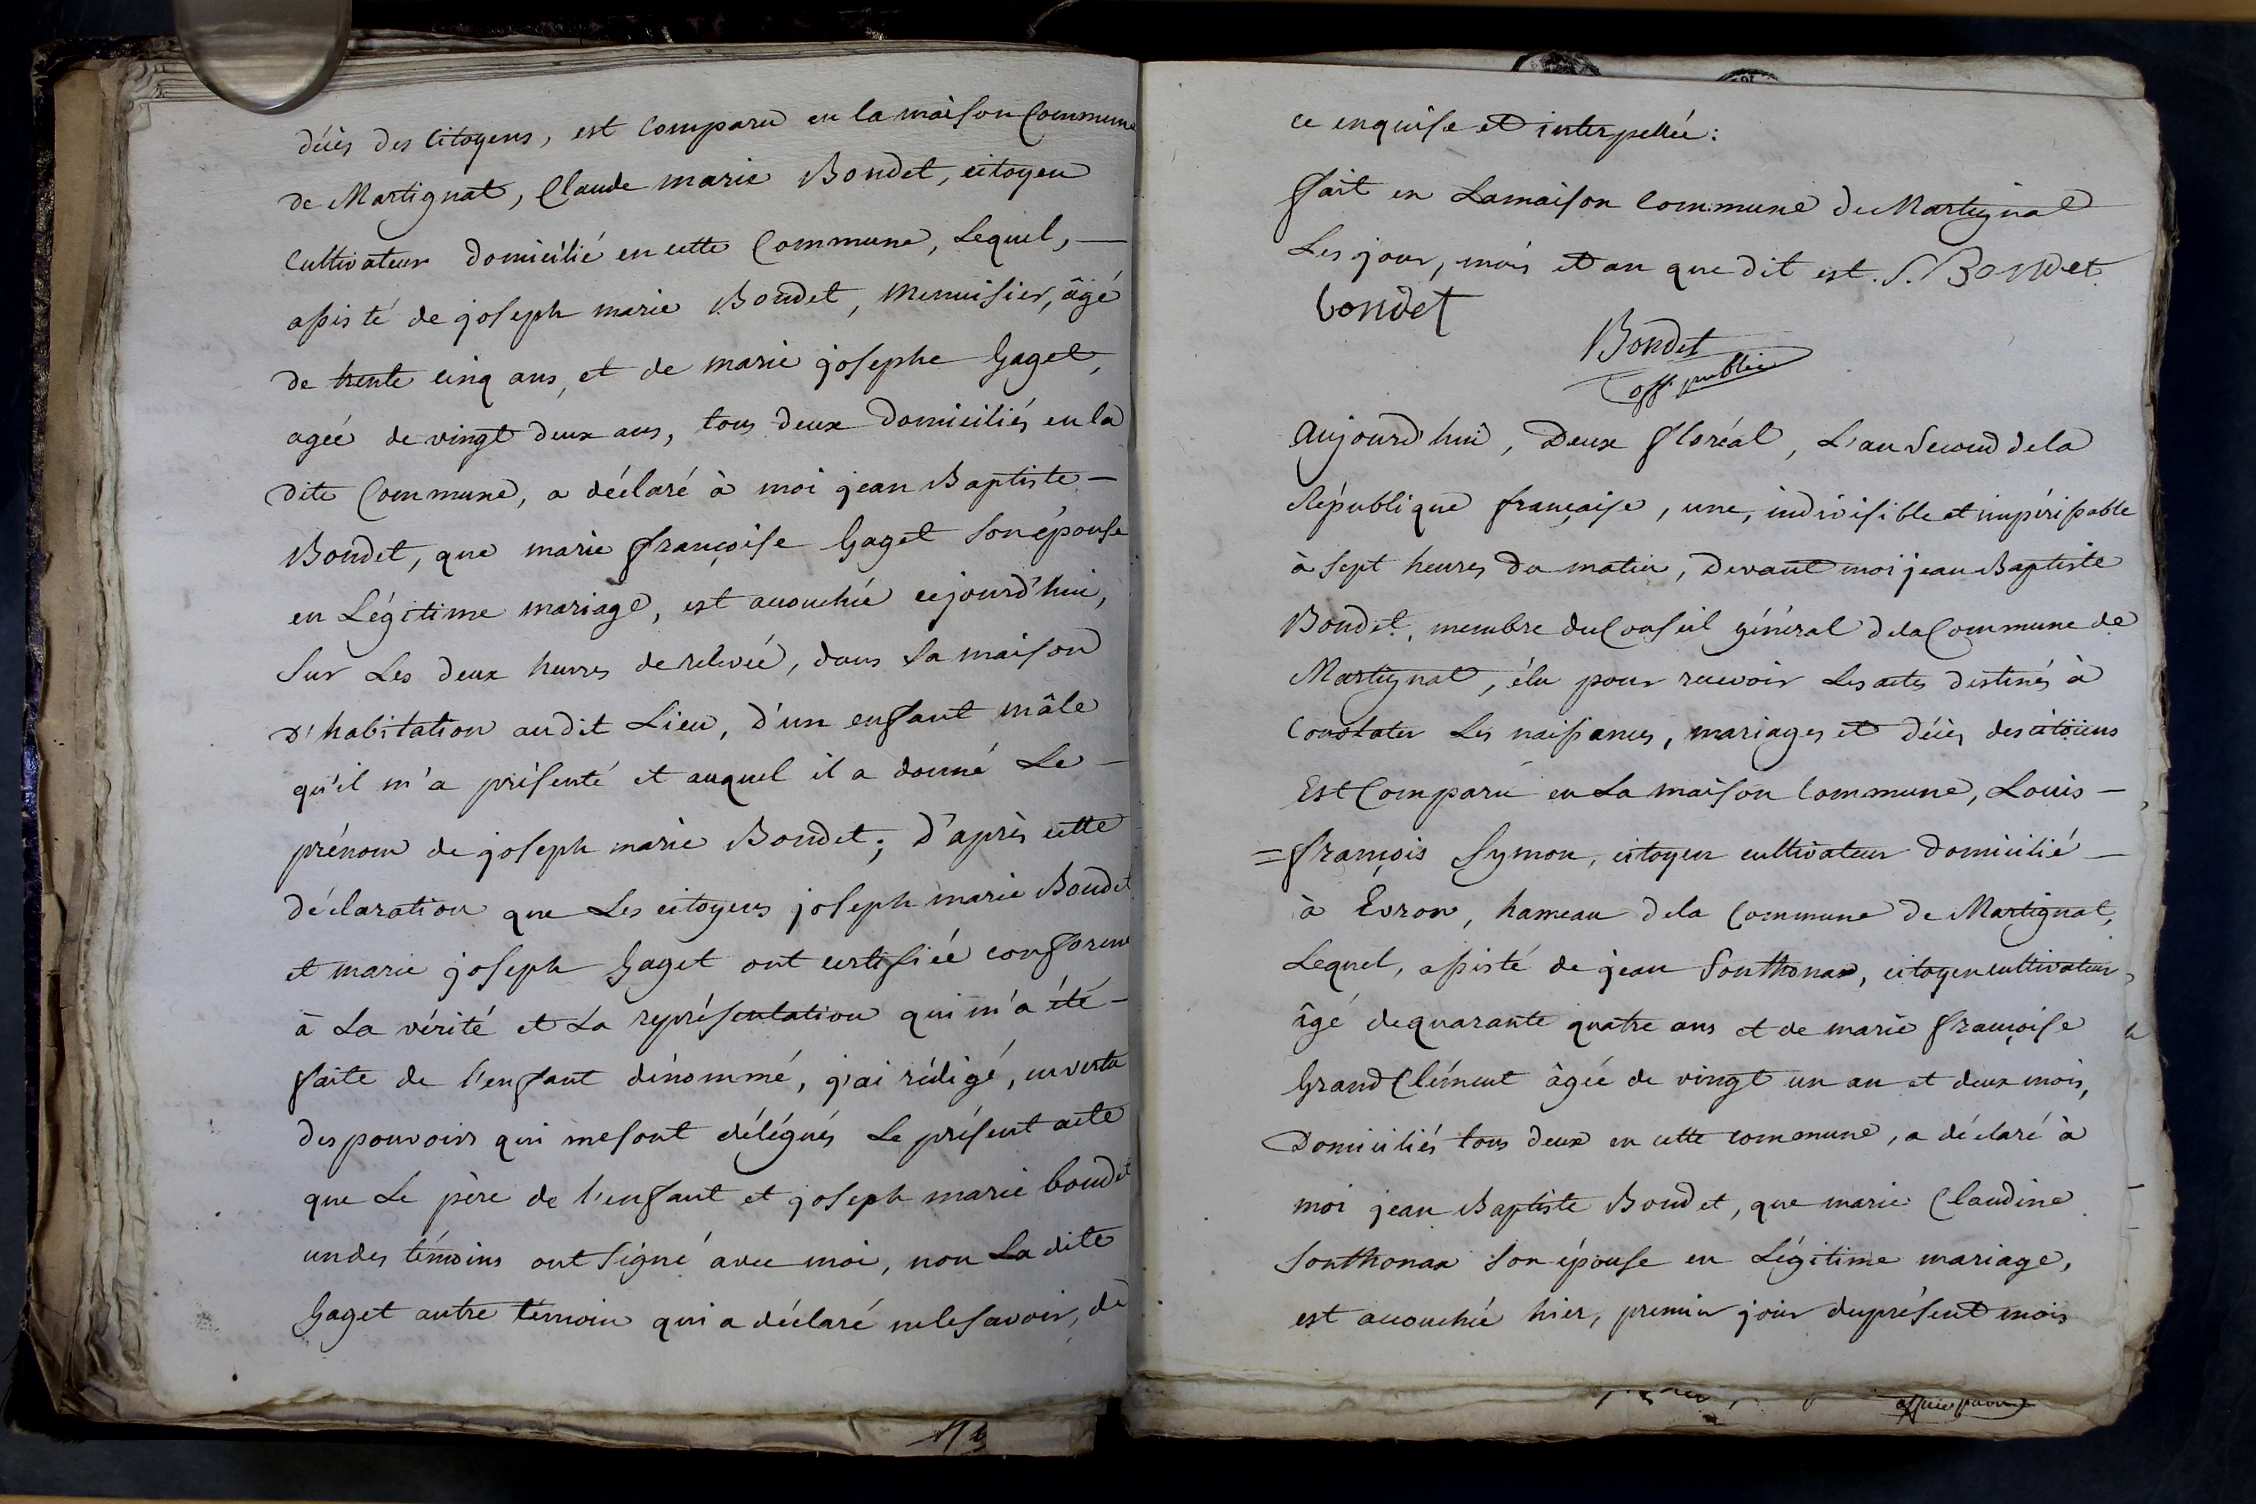 décès des Citoyens, est Comparu en la maison Commune
de Martignat, Claude marie Bondet, citoyen
Cultivateur Domicilié en cette Commune, Lequel, —
assisté de joseph marie Bondet, Menuisier, âgé
de trente cinq ans, et de marie josephe Gaget,
agée de vingt deux ans, tous deux Domiciliés en la
dite Commune, a déclaré à moi jean Baptiste —
Bondet, que marie françoise Gaget son épouse
en Légitime mariage, est accouchée cejourd'hui,
Sur Les deux heures de relevée, dans sa maison
D'habitation audit Lieu, d'un enfant mâle
qu'il m'a présenté et auquel il a donné Le —
prénom de joseph marie Bondet; D'après cette
déclaration que Les citoyens joseph marie Bondet
et marie joseph Gaget ont certifiée conforme
à La vérité et La représentation qui m'a été —
faite de l'enfant dénommé, j'ai rédigé, en vertu
des pouvoirs qui me sont délégués Le présent acte
que Le père de l'enfant et joseph marie bondet
un des témoins ont Signé avec moi, non La dite
Gaget autre témoin qui a déclaré ne le savoir, de
ce enquise et interpellée :
fait en La maison Commune de Martignat
Les jour, mois et an que dit est. J. Bondet
bondet
Bondet
off. public
Aujourd'hui, Deux floréal, L'an Second de la
République française, une, indivisible et impérissable
à Sept heures du matin, Devant moi jean Baptiste
Bondet, membre du Conseil général de la Commune de
Martignat, élu pour recevoir Les actes destinés à
Constater Les naissances, mariages et décès des citoiens
Est Comparu en La maison Commune, Louis —
= françois Symon, citoyen cultivateur domicilié —
à Evron, hameau de la Commune de Martignat,
Lequel, assisté de jean Sonthonax, citoyen cultivateur,
âgé de quarante quatre ans et de marie françoise
GrandClément âgée de vingt un an et deux mois,
Domiciliés tous deux en cette commune, a déclaré à
moi jean Baptiste Bondet, que marie Claudine
Sonthonax Son épouse en Légitime mariage,
est accouchée hier, premier jour du présent mois